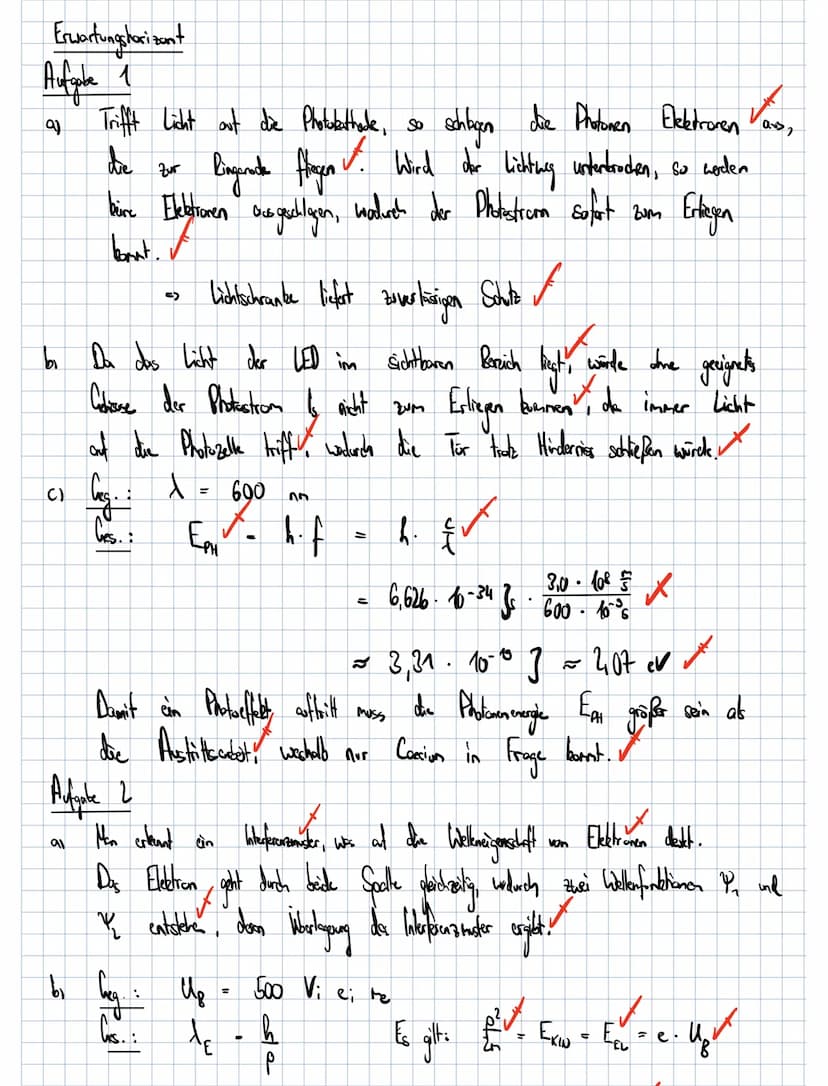 Erwartungshorizont
Aufgabe 1
a) Trifft Licht auf die Photokathode, so schlagen die Photonen Elektronen aus,
die zur Ringanode fliegen. Wird der Lichtweg unterbrochen, so werden
keine Elektronen ausgeschlagen, wodurch der Photostrom sofort zum Erliegen
kommt.
=> Lichtschranke liefert zuverlässigen Schutz
b) Da das Licht der LED im sichtbaren Bereich liegt, würde ohne geeignetes
Gehäuse der Photostrom nicht zum Erliegen kommen, da immer Licht
auf die Photozelle trifft, wodurch die Tür trotz Hindernis schließen würde.
c) Geg.: λ = 600 nm
Ges.: E_PH = h · f = h · c/λ
= 6,626 · 10^-34 Js · 3,0 · 10^8 m/s / 600 · 10^-9
≈ 3,31 · 10^-19 J ≈ 2,07 eV
Damit ein Photoeffekt auftritt muss die Photonenenergie E_PH größer sein als
die Austrittsarbeit, weshalb nur Caesium in Frage kommt.
Aufgabe 2
a) Man erkennt ein Interferenzmuster, was auf die Welleneigenschaft von Elektronen deutet.
Das Elektron geht durch beide Spalte gleichzeitig, wodurch zwei Wellenfunktionen Ψ_1 und
Ψ_2 entstehen, deren Überlagerung das Interferenzmuster ergibt.
b) Geg.: U_B = 500 V; e; m_e
Ges.: λ_E = h/p Es gilt: p²/2m = E_KIN = E_EL = e · U_B